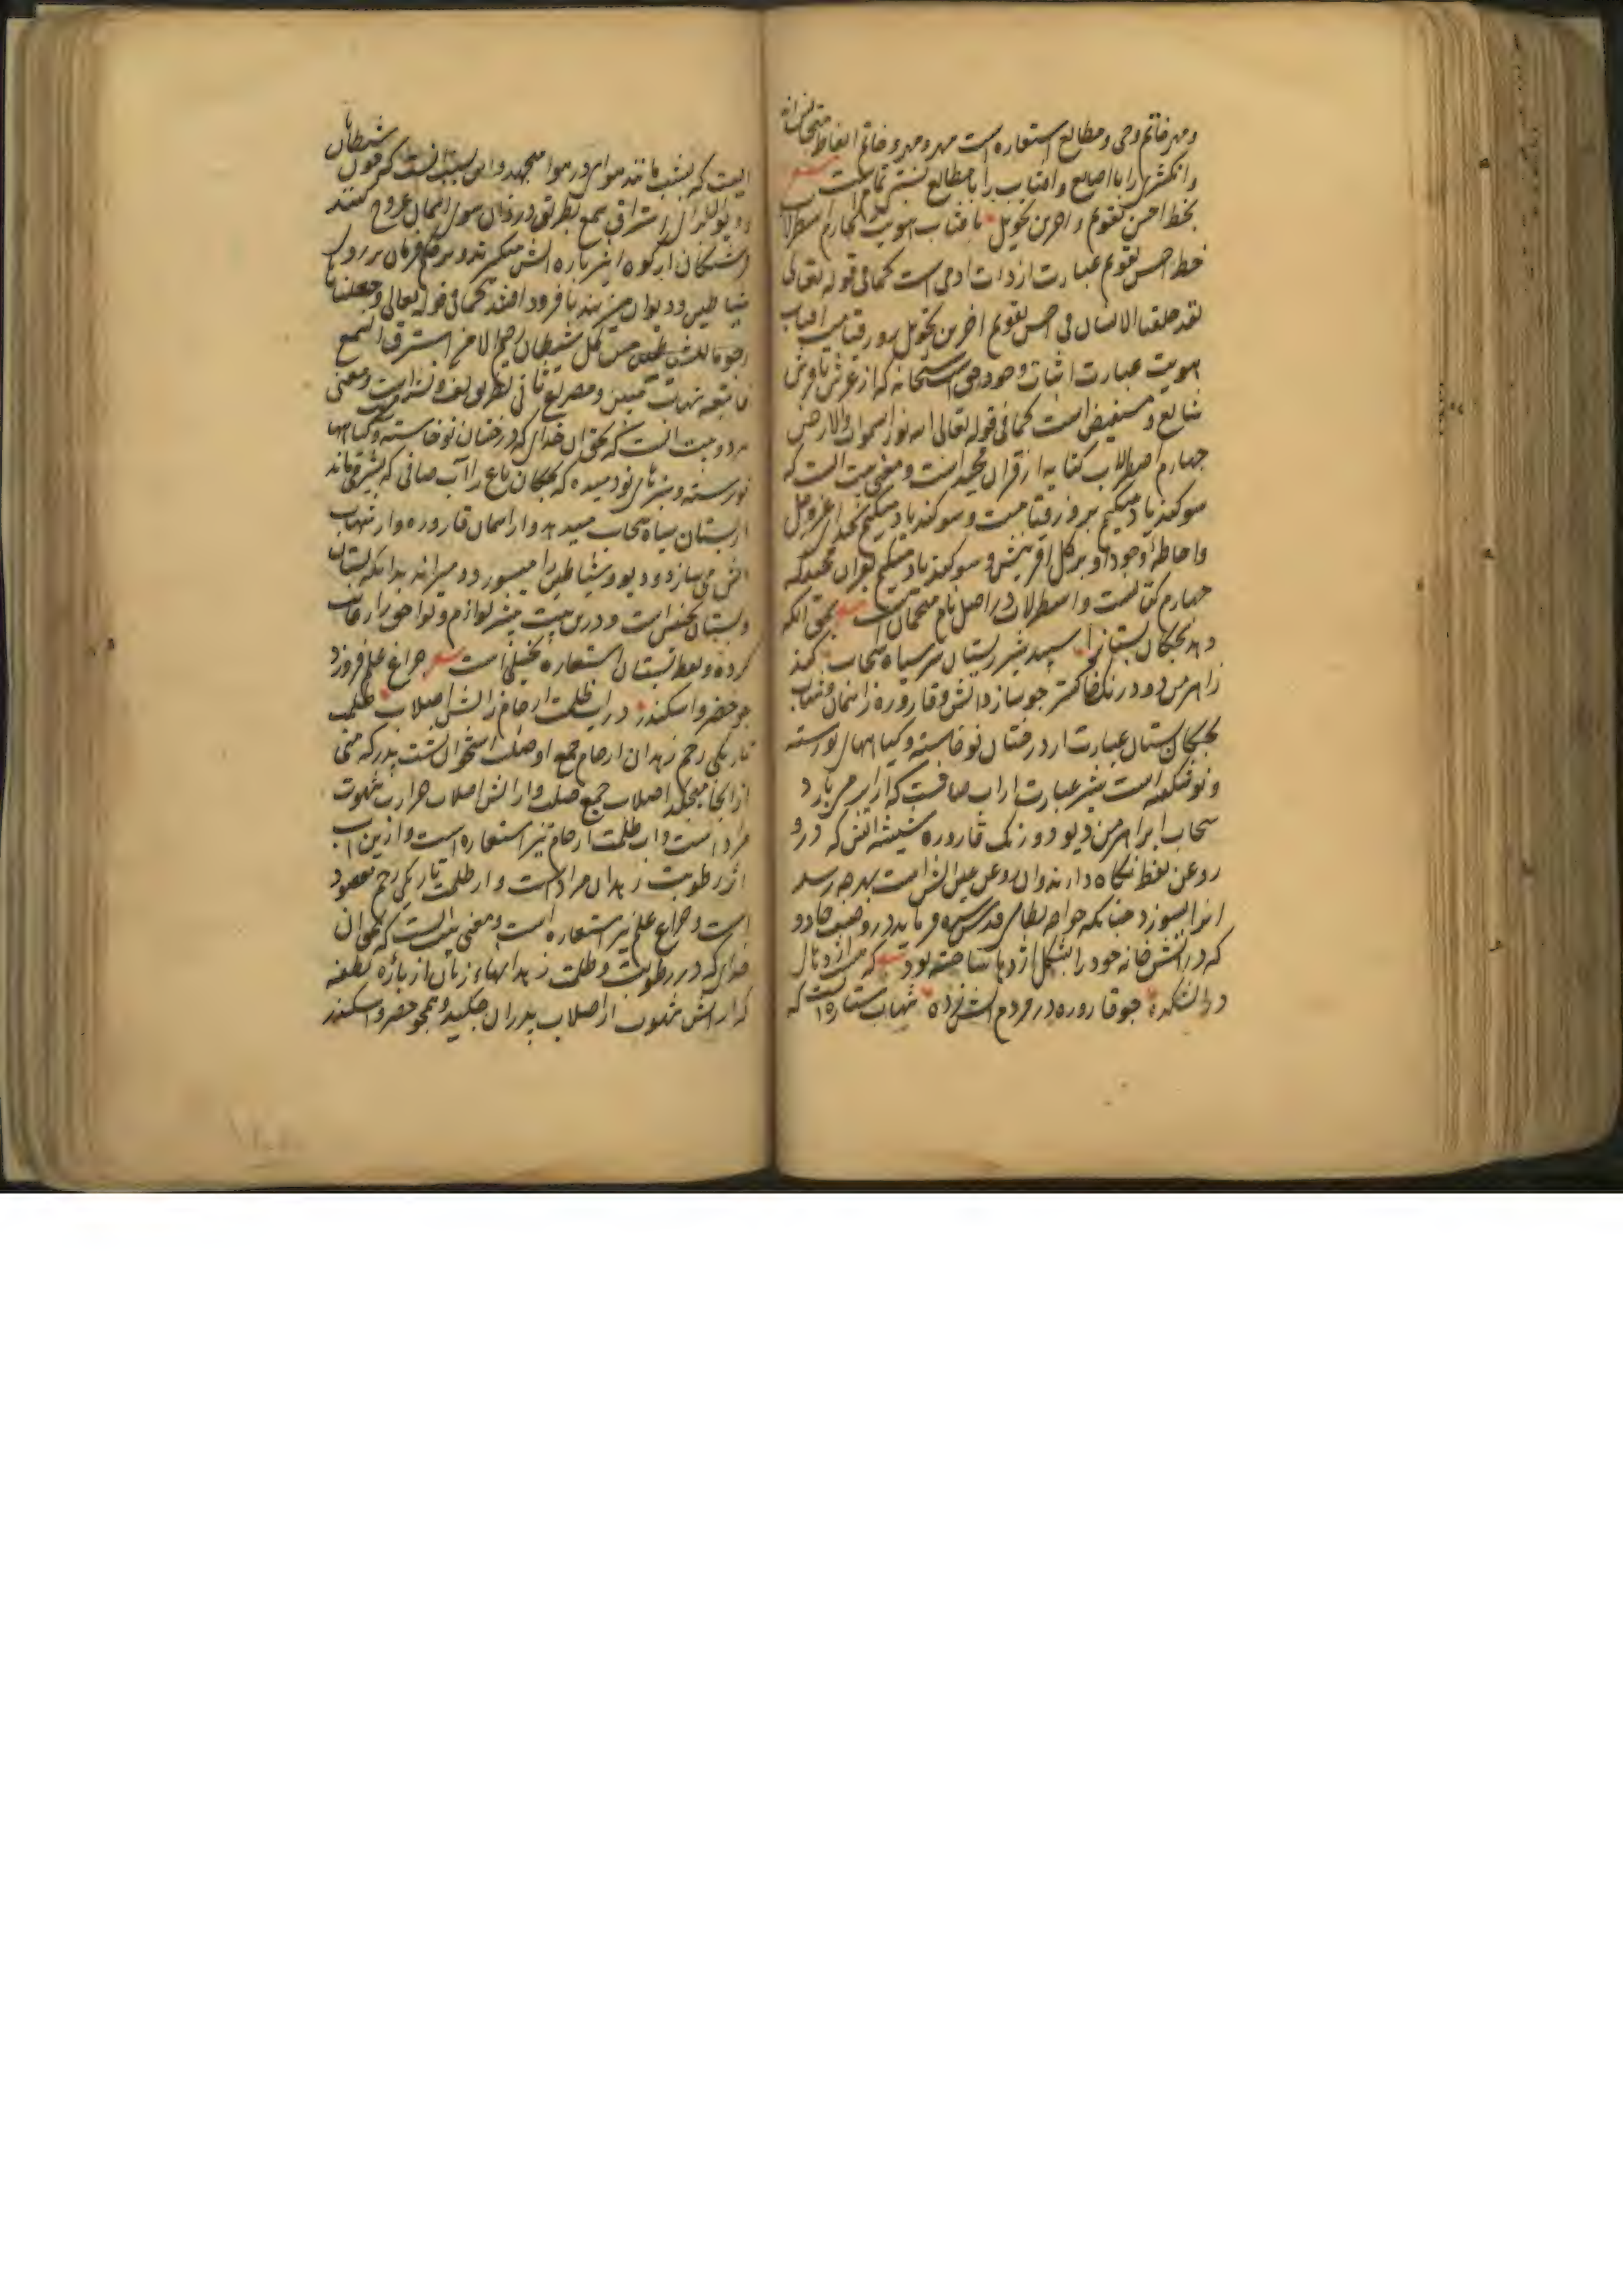 و مهر خاتم وحی و مطالع استعاره است مهر و مهر و خاتم الفاظ متجانس‌اند
و انکشتری را با اصابع و افتاب را با مطالع نسبتی تمام است شعر
بخط احسن تقویم و اخرین تحویل بافتاب هویت بچارم اسطرلاب
خط احسن تقویم عبارت از ذات ادمی است کما فی قوله تعالی
لقد خلقنا الانسان فی احسن تقویم اخرین تحویل روز قیامت افتاب
هویت عبارت اثبات وجود حق سبحانه که از عرش تا فرش
شایع و مستفیض است کما فی قوله تعالی الله نور السموات والارض
چهارم اصطرلاب کنایه از قران مجید است و معنی بیت انست که
سوکند یاد میکنم بروز قیامت و سوکند یاد میکنم بخدای عزوجل
و احاطه وجود او بر کل افرینش و سوکند یاد میکنم بقران مجید که
چهارم کتابست و اسطرلاب در اصل نام منجمان است شعر بحق انکه
دهد بچکان بستانرا سپید شیر ز پستان سر سیاه سحاب کند
ز اهرمن دود رنک خاکستر چو سازد اتش و قاروره ز اسمان و شهاب
بچکان بستان عبارت از درختان نوخاسته و کیاههای نورسته
و نوشکفته است شیر عبارت از اب صافیست که از ابر می بارد
سحاب ابر اهرمن دیو دود رنک قاروره شیشه اتش که درو
روغن نفط نکاه دارند و ان روغن عین اتش است بهر چه رسد
انرا بسوزد چنانکه خواجه نظامی قدس سره فرماید در وصف جادو
که در اتش خانه خود را بشکل اژدها ساخته بود شعر که
در اتشکده چو قاروره در مردم اتش زده شهاب ستاره ایست که
ایست که بشب مانند موی در هوا میجهد و این بسبب انست که چون شیطانان
و دیوان از برای استراق سمع بطریق دزدان سوی اسمان عروج کنند
فرشتکان از کره اثیر پاره اتش میکیرند و بر حکم فرمان بر روی
شیاطین و دیوان میزنند تا فرود افتند کما فی قوله تعالی و جعلناها
رجوما للشیاطین من کل شیطان رجیم الا من استرق السمع
فاتبعه شهاب مبین و مصراع ثانی بطریق لف و نشر است و معنی
هر دو بیت انست که بحق ان خدای که درختان نوخاسته و کیاهها
نورسته و سبزهای نودمیده که بچکان باغ را آب صافی که بشیر می ماند
از پستان سیاه سحاب میدهد و از اسمان قاروره و از شهاب
اتش می سازد و دیو و شیاطین را میسوزد و میراند بدانکه بستان
و پستان تجنیس است و درین بیت شیر لوازم و لواحق را رعایت
کرده و لفظ پستان استعاره تخییلی است شعر چراغ علم فروزد
چو خضر و اسکندر در اب ظلمت ارحام ز اتش اصلاب ظلمت
تاریکی رحم زهدان ارحام جمع او صلب استخوان پشت پدر که منی
از انجا میچکد اصلاب جمع صلب و از اتش اصلاب حرارت شهوت
مراد است و اب ظلمت ارحام نیز استعاره است و ازین اب
اثر رطوبت زهدان مراد است و از ظلمت تاریکی رحم مقصود
است و چراغ علم نیز استعاره است و معنی بیت انست که بحق ان
خدای که در رطوبت و ظلمت زهدانهاء زنان از پاره نطفه
که از اتش شهوت از اصلاب پدران چکیده همچو خضر و اسکندر